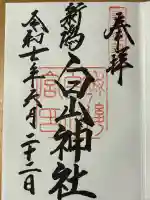 奉拝
新潟
白山神社
令和七年六月二十二日